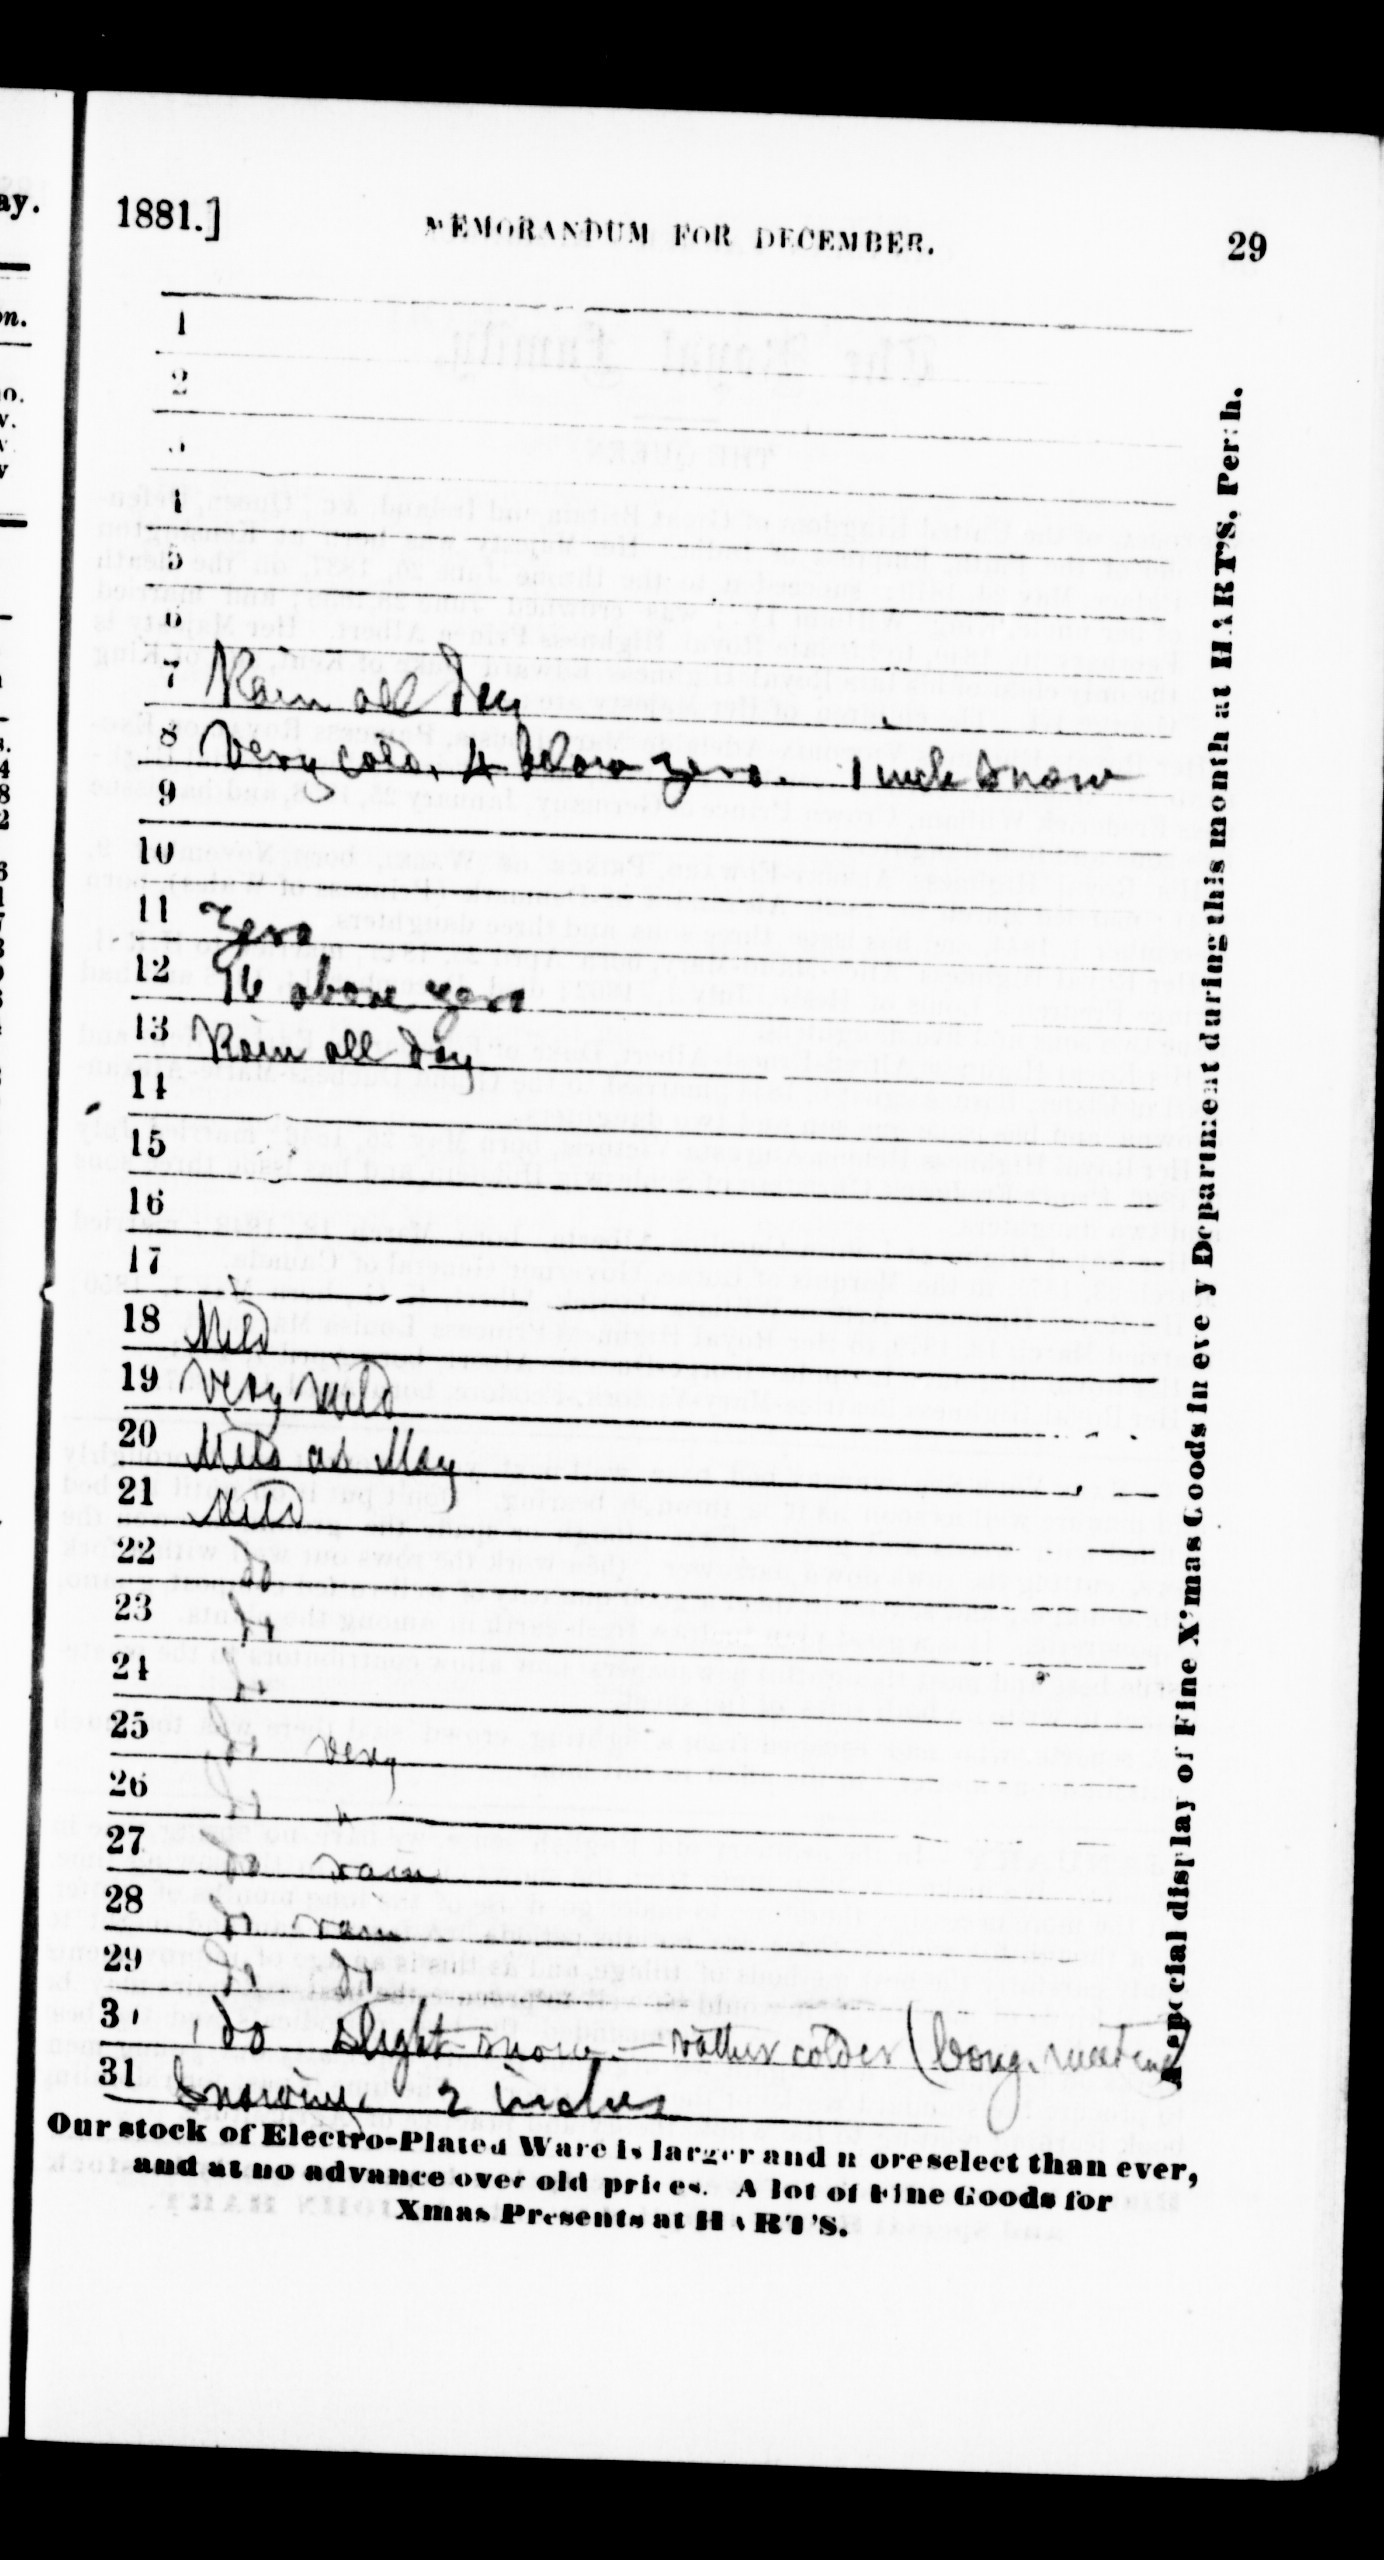 1881.] MEMORANDUM FOR DECEMBER. 29
1
2
3
4
5
6
7 Rain all day
8 Very cold, 4 below zero. 1 inch snow
9
10
11 Zero
12 16 above zero
13 Rain all day
14
15
16
17
18 Mild
19 Very mild
20 Mild as May
21 Mild
22 do
23 do
24 do
25 do very
26 do "
27 do rain
28 do rain
29 do do
30 do slight snow - rather colder (Cong. meeting)
31 Snowing 2 inches
Our stock of Electro-Plated Ware is larger and more select than ever,
and at no advance over old prices. A lot of Fine Goods for
Xmas Presents at HART'S.
A special display of Fine X'mas Goods in every Department during this month at HART'S, Perth.
ay.
on.